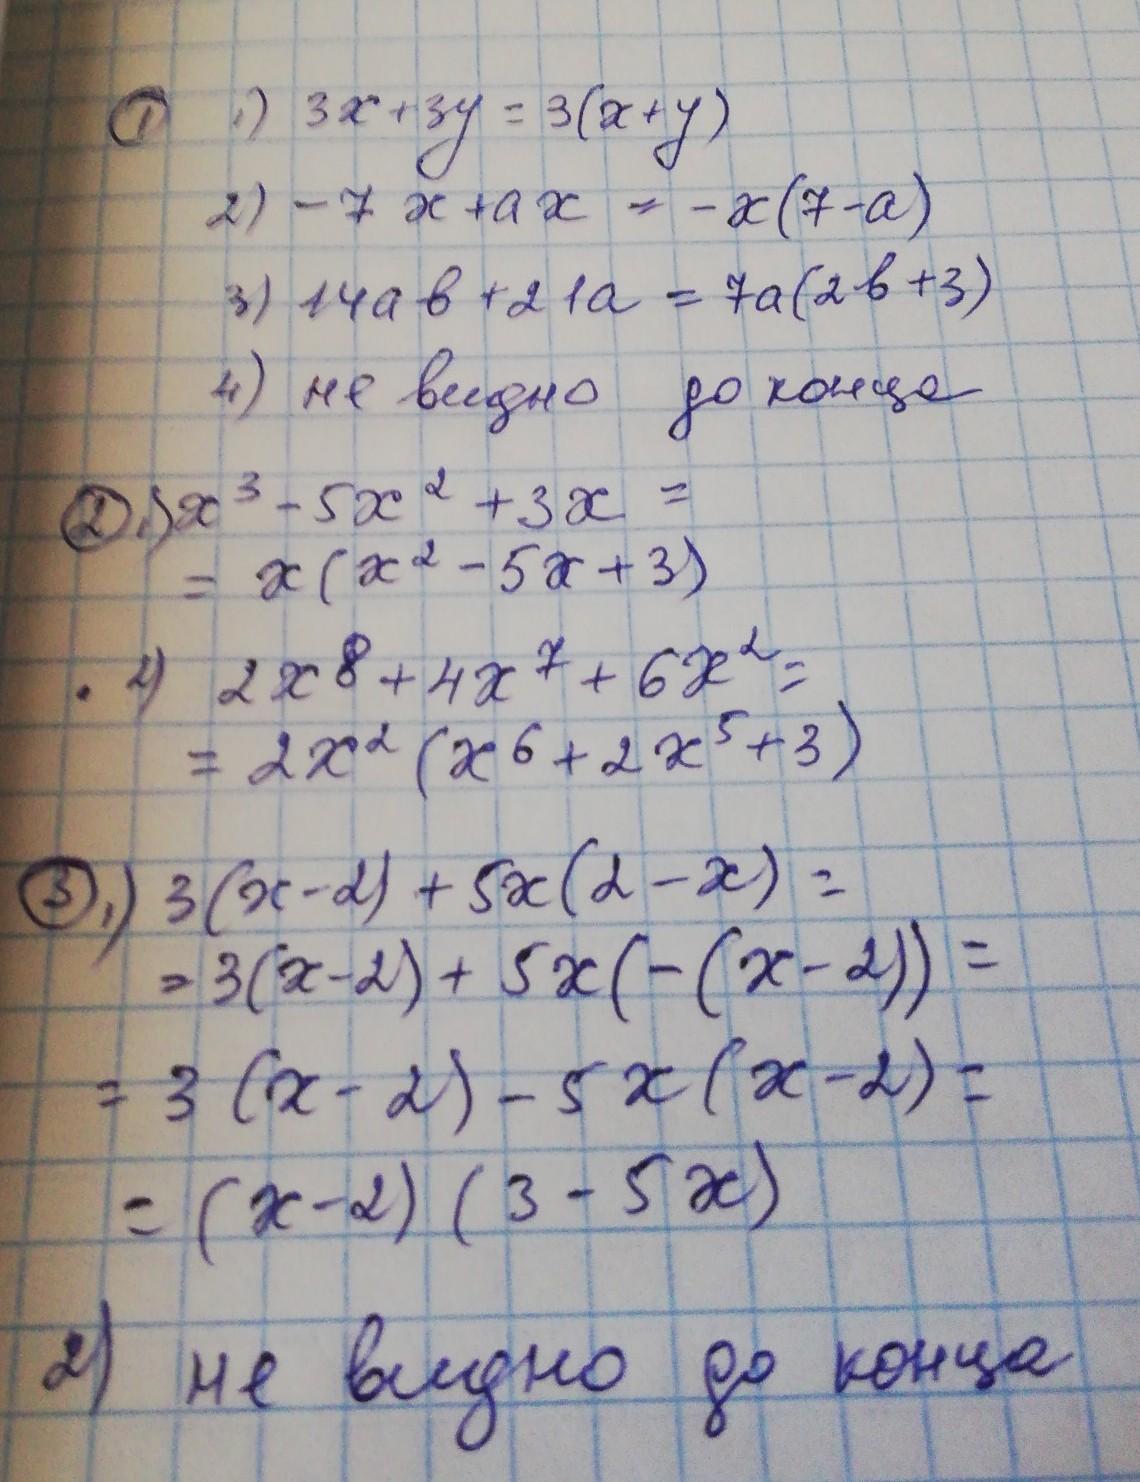 ① 1) 3x + 3y = 3(x+y)
2) - 7x + ax = -x(7-a)
3) 14ab + 21a = 7a(2b+3)
4) не видно до конца
② 1) x³ - 5x² + 3x =
= x(x² - 5x + 3)
2) 2x⁸ + 4x⁷ + 6x² =
= 2x² (x⁶ + 2x⁵ + 3)
③ 1) 3(x-2) + 5x(2-x) =
= 3(x-2) + 5x(-(x-2)) =
= 3(x-2) - 5x(x-2) =
= (x-2)(3-5x)
2) не видно до конца